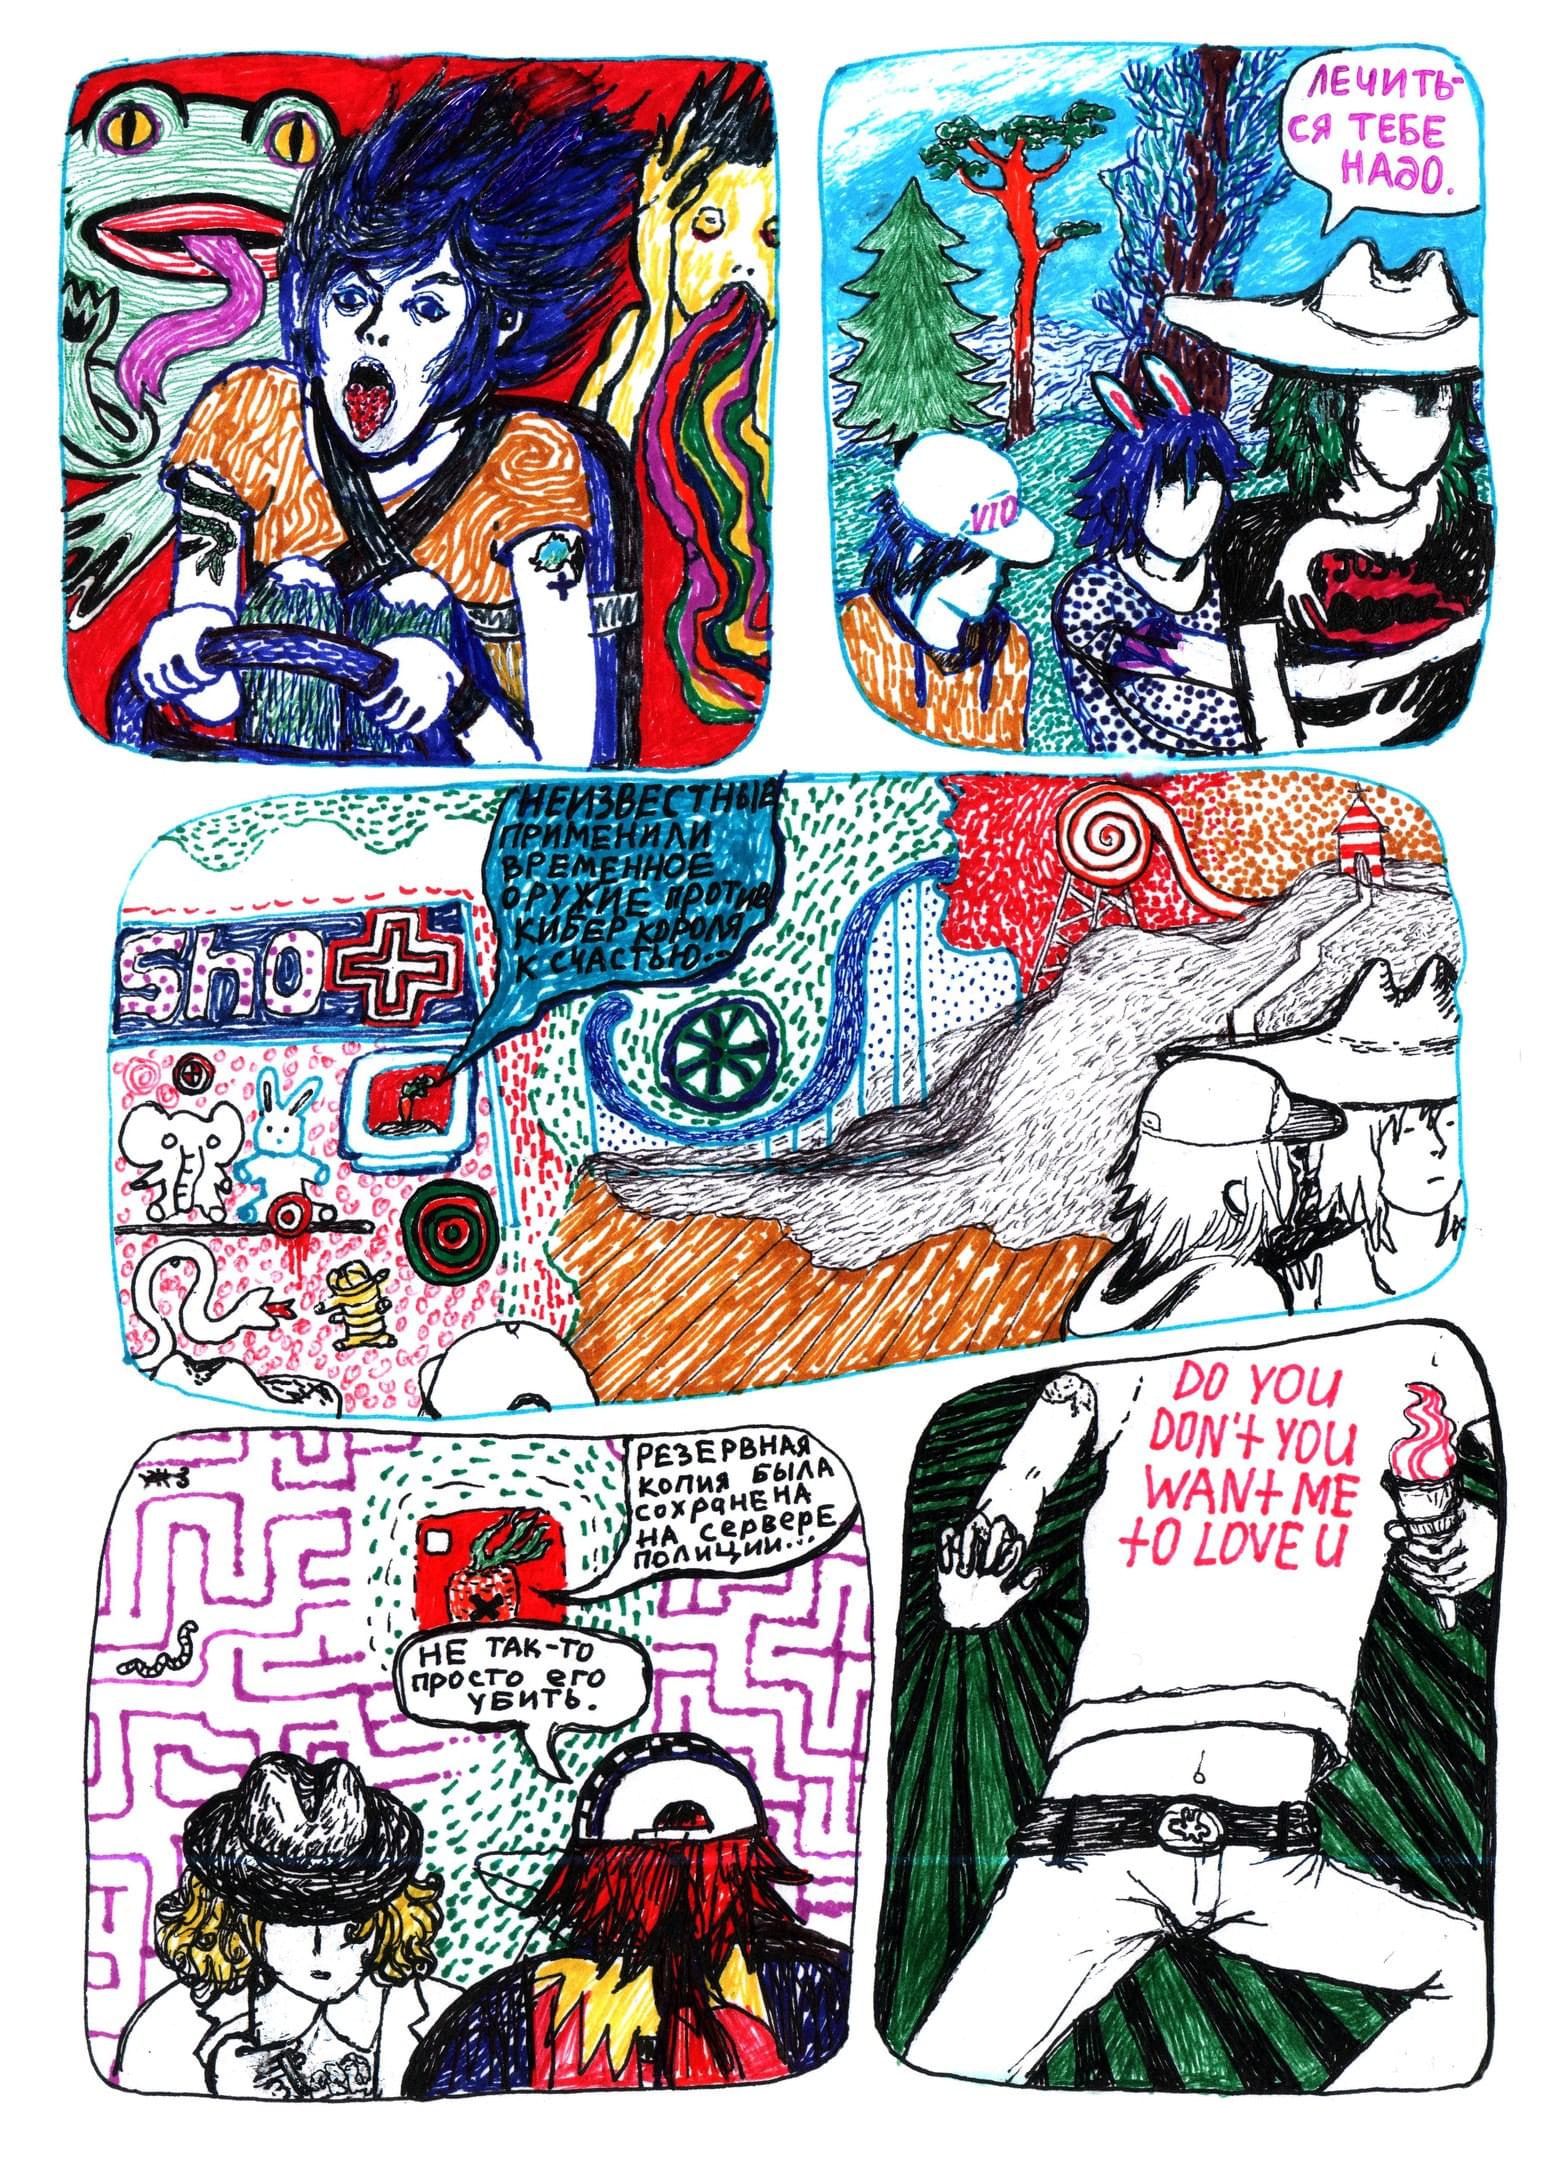 ЛЕЧИТЬ-
СЯ ТЕБЕ
НАДО.
VIO
НЕИЗВЕСТНЫЕ
ПРИМЕНИЛИ
ВРЕМЕННОЕ
ОРУЖИЕ ПРОТИВ
КИБЕР КОРОЛЯ
К СЧАСТЬЮ...
Sho
РЕЗЕРВНАЯ
КОПИЯ БЫЛА
СОХРАНЕНА
НА СЕРВЕРЕ
ПОЛИЦИИ...
НЕ ТАК-ТО
ПРОСТО ЕГО
УБИТЬ.
DO YOU
DON'T YOU
WANT ME
TO LOVE U